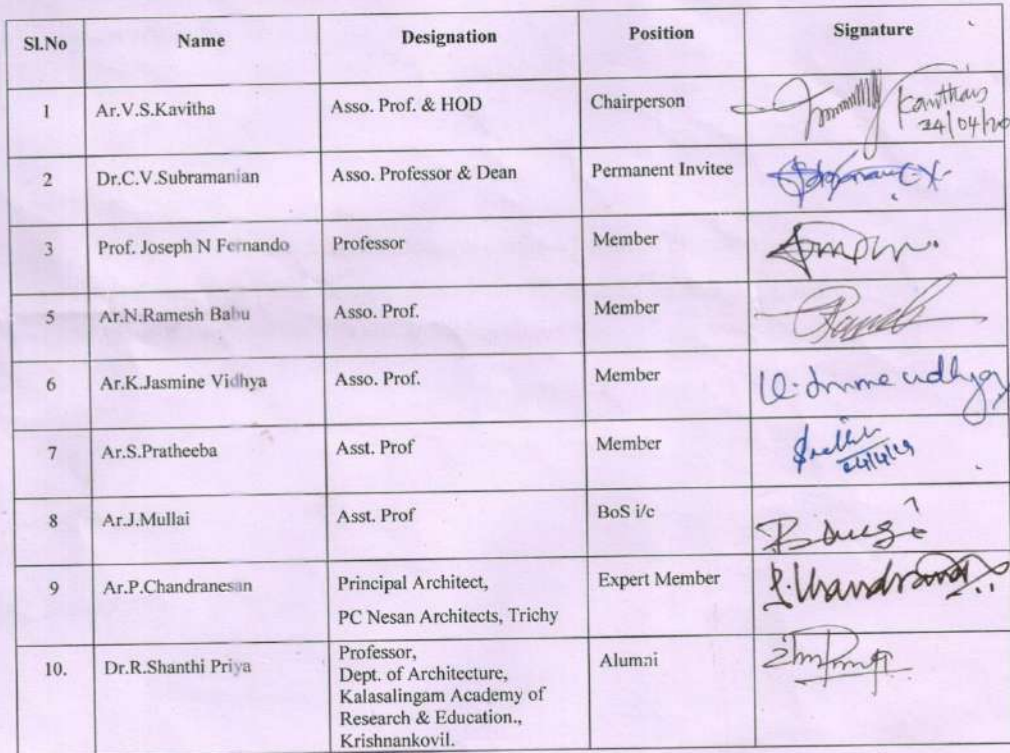 Sl.No Name Designation Position Signature
1 Ar.V.S.Kavitha Asso. Prof. & HOD Chairperson
2 Dr.C.V.Subramanian Asso. Professor & Dean Permanent Invitee
3 Prof. Joseph N Fernando Professor Member
5 Ar.N.Ramesh Babu Asso. Prof. Member
6 Ar.K.Jasmine Vidhya Asso. Prof. Member
7 Ar.S.Pratheeba Asst. Prof Member
24/4/19
8 Ar.J.Mullai Asst. Prof BoS i/c
9 Ar.P.Chandranesan Principal Architect, Expert Member
PC Nesan Architects, Trichy
10. Dr.R.Shanthi Priya Professor, Alumni
Dept. of Architecture,
Kalasalingam Academy of
Research & Education.,
Krishnankovil.